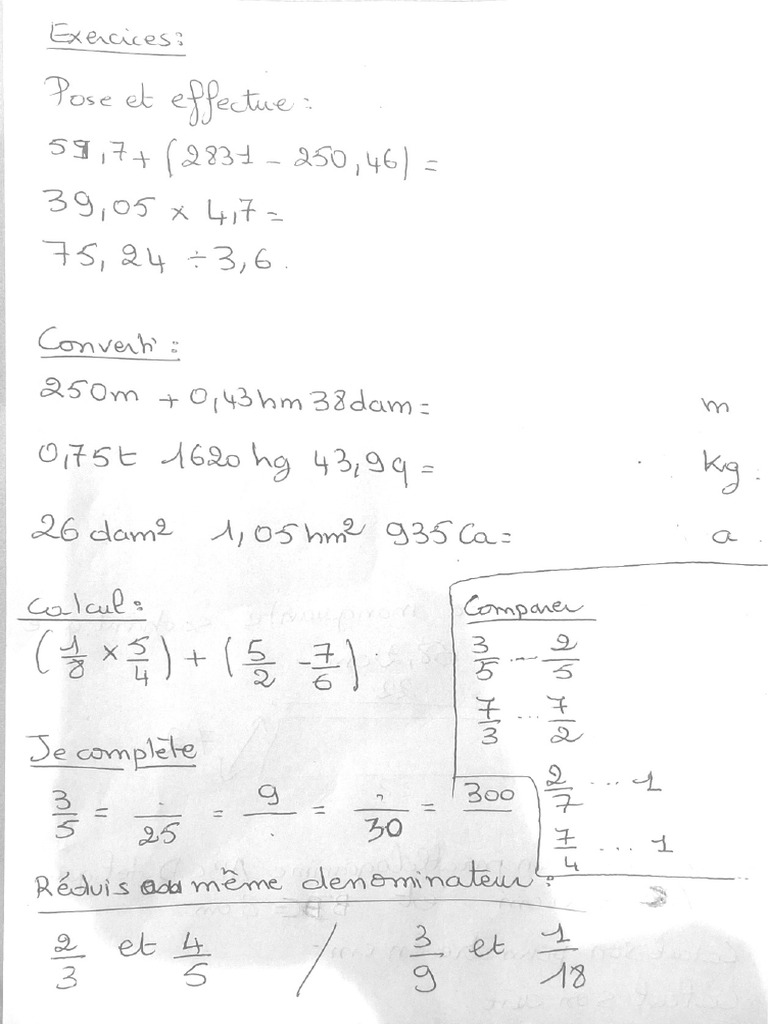 Exercices:
Pose et effectue:
59,7 + (2831 - 250,46) =
39,05 × 4,7 =
75,24 ÷ 3,6.
Converti:
250m + 0,43hm 38dam = m
0,75t 1620hg 43,9q = kg.
26 dam² 1,05hm² 935 Ca = a
Calcul:
(1/8 × 5/4) + (5/2 - 7/6)
Comparer
3/5 ... 2/5
7/3 ... 7/2
2/7 ... 1
7/4 ... 1
Je complète
3/5 = ./25 = 9/. = ./30 = 300/
Réduis même denominateur:
2/3 et 4/5 / 3/9 et 1/18